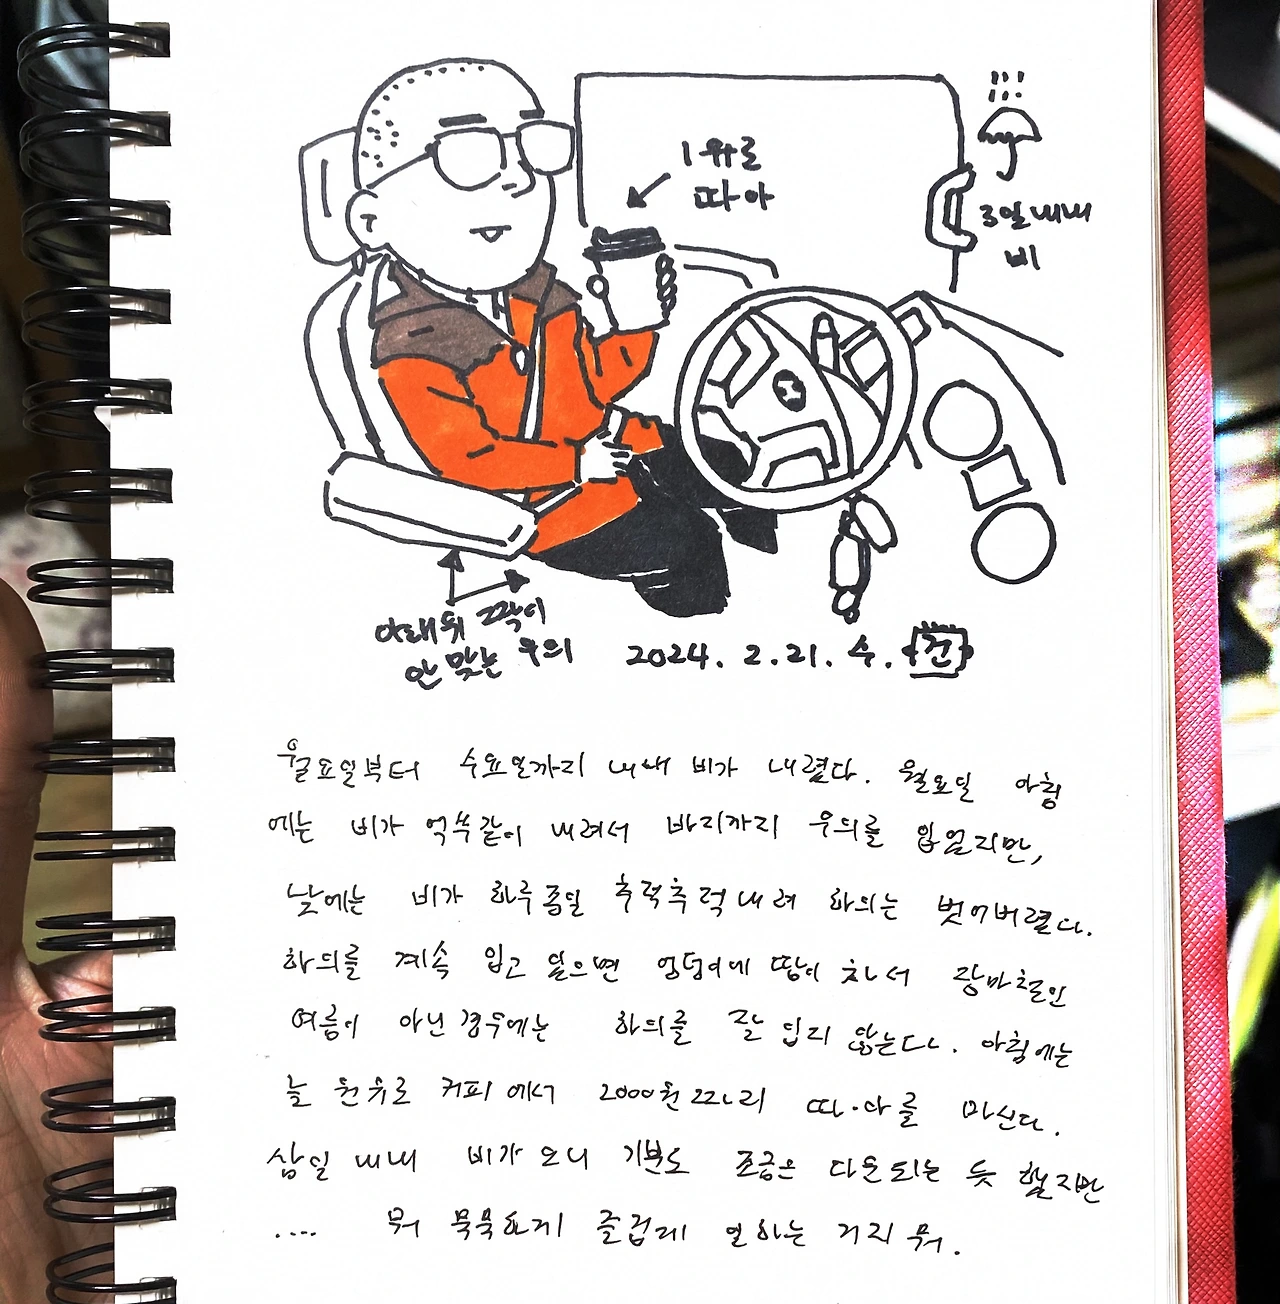 1유로
따아
3일내내
비
아래위 깍이
안 맞는 우의
2024. 2. 21. 수. 건
월요일부터 수요일까지 내내 비가 내렸다. 월요일 아침
에는 비가 억쑥같이 내려서 바리까리 우의를 입었지만,
낮에는 비가 하루종일 추적추적 내려 하의는 벗어버렸다.
하의를 계속 입고 일으면 엉덩이에 땀이 차서 장마철인
여름이 아닌경우에는 하의를 잘 입지 않는다. 아침에는
늘 원유로 커피에서 2000원 짜리 따.아를 마신다.
삼일 내내 비가 오니 기분도 조금은 다운되는 듯 했지만
.... 뭐 묵묵하게 즐겁게 일하는 거지 뭐.